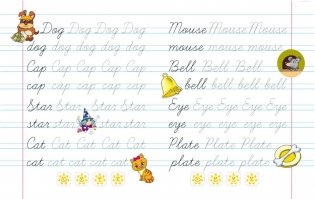 Dog Dog Dog Dog
dog dog dog dog dog
Cap Cap Cap Cap Cap
cap cap cap cap cap
Star Star Star Star
star star star star
Cat Cat Cat Cat Cat
cat cat cat cat cat
Mouse Mouse Mouse
mouse mouse mouse
Bell Bell Bell
bell bell bell bell
Eye Eye Eye Eye Eye
eye eye eye eye eye
Plate Plate Plate
plate plate plate